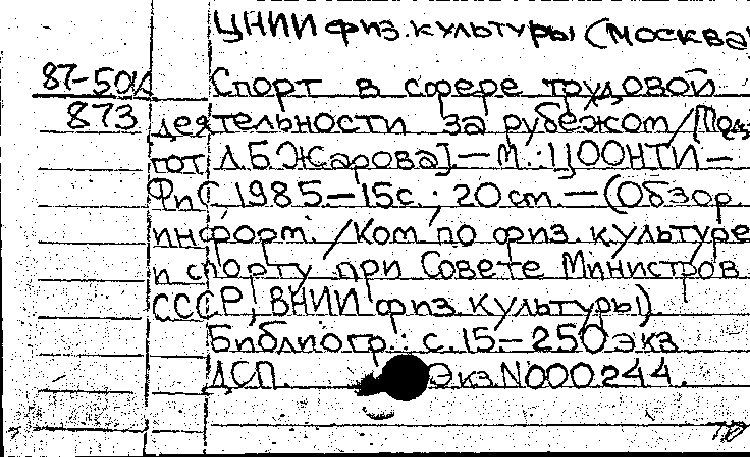 ЦНИИ физ. культуры (Москва)
87-501К Спорт в сфере трудовой
873 деятельности за рубежом / [Под
гот. Л. Б. Жарова]. — М.: ЦООНТИ —
ФиС, 1985. — 15 с.; 20 см. — (Обзор.
информ. / Ком. по физ. культуре
и спорту при Совете Министров
СССР, ВНИИ физ. культуры).
Библиогр.: с. 15. — 250 экз.
ДСП. Экз. N000244.